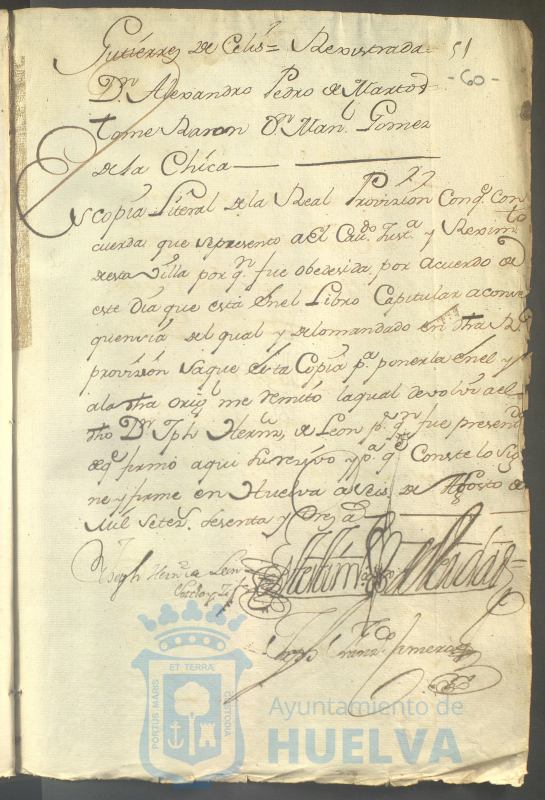 Gutierrez de Celis = Rexistrada = 51
D.n Alexandro Pedro de Martos - 60 -
tome Razon D.n Man.l Gomez
de la Chica
Es copia Literal de la Real Provision Con q.e con
cuerda que se presento a el Cav.do Just.a y Rexim.to
de esta Villa por q.n fue obedesida por acuerdo de
este dia que está en el Libro Capitular a conse
quenzia del qual y de lo mandado en dha R.l
provision saque esta Copia p.a ponerla en el y
a la dha orig.l me remito la qual devolvi a el
dho D.n Jph Herrn.z de Leon p.r q.n fue presend.a
de q.e firmó aqui su resivo y p.a q.e Conste lo sig
ne y firme en Huelva a seis de Agosto de
Mil Seter.s sesenta y Tres a.s
Joseph Leon
PORTUS MARIS
ET TERRÆ
CUSTODIA
Ayuntamiento de
HUELVA